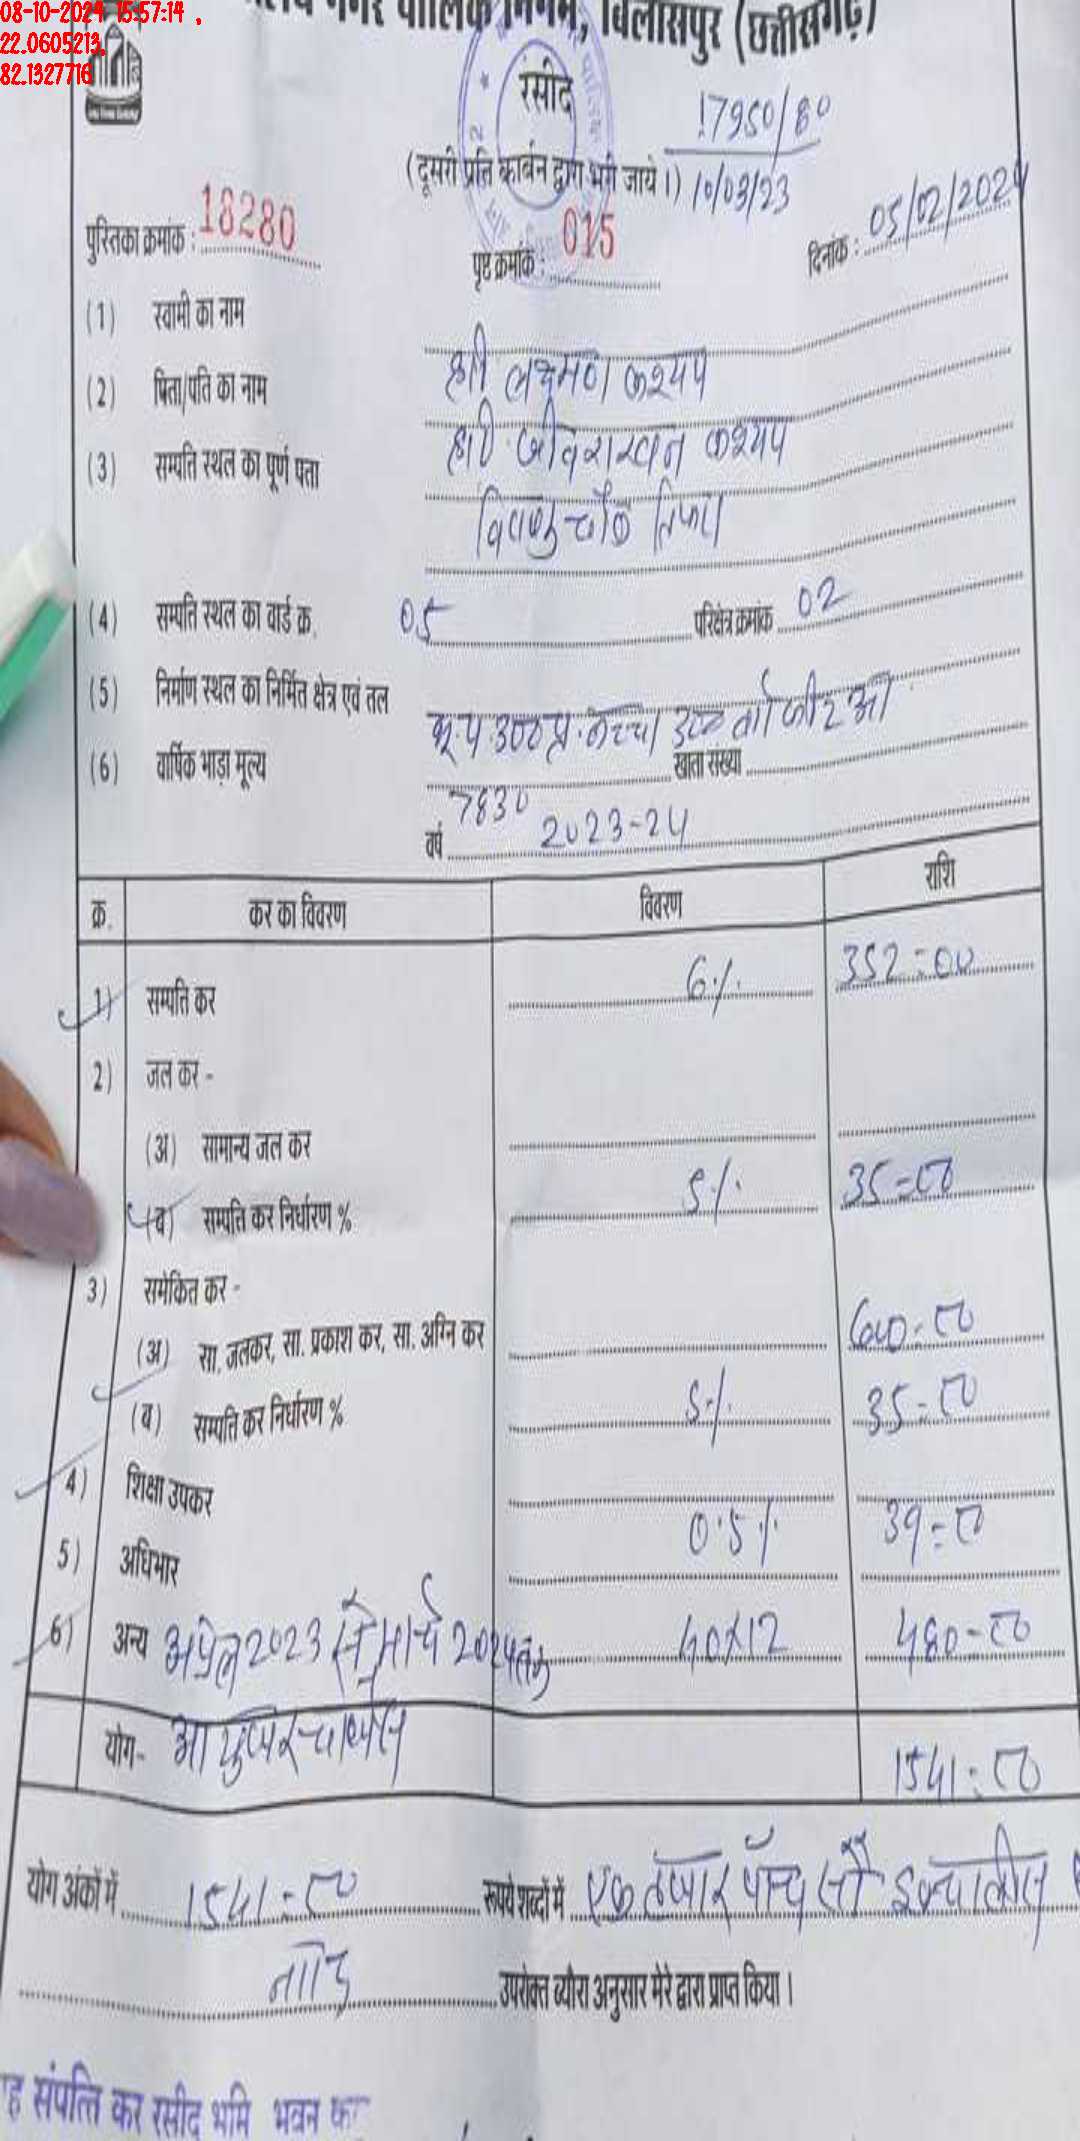 08-10-2024 15:57:14 ,
22.0605213,
82.1327716
नगर पालिक निगम, बिलासपुर (छत्तीसगढ़)
रसीद
17950/80
(दूसरी प्रति कार्बन द्वारा भरी जाये।) 10/03/23
पुस्तिका क्रमांक : 18280 पृष्ठ क्रमांक : 015 दिनांक : 05/02/2024
(1) स्वामी का नाम
श्री लक्ष्मण कश्यप
(2) पिता/पति का नाम
श्री कश्यप
(3) सम्पति स्थल का पूर्ण पता
चौक तिफरा
(4) सम्पति स्थल का वार्ड क्र. 05 परिक्षेत्र क्रमांक 02
(5) निर्माण स्थल का निर्मित क्षेत्र एवं तल
(6) वार्षिक भाड़ा मूल्य 7830 खाता संख्या
वर्ष 2023-24
क्र. कर का विवरण विवरण राशि
1) सम्पति कर 6% 352=00
2) जल कर -
(अ) सामान्य जल कर
(ब) सम्पति कर निर्धारण % 5% 35=00
3) समेकित कर -
(अ) सा. जलकर, सा. प्रकाश कर, सा. अग्नि कर 600=00
(ब) सम्पति कर निर्धारण % 5% 35=00
4) शिक्षा उपकर 0.5% 39=00
5) अधिभार
6) अन्य अप्रेल 2023 से मार्च 2024 तक 40x12 480=00
योग- 1541=00
योग अंकों में 1541=00 रूपये शब्दों में एक हजार पाँच सौ इक्चालीस
मात्र उपरोक्त ब्यौरा अनुसार मेरे द्वारा प्राप्त किया।
संपत्ति कर रसीद भूमि भवन का